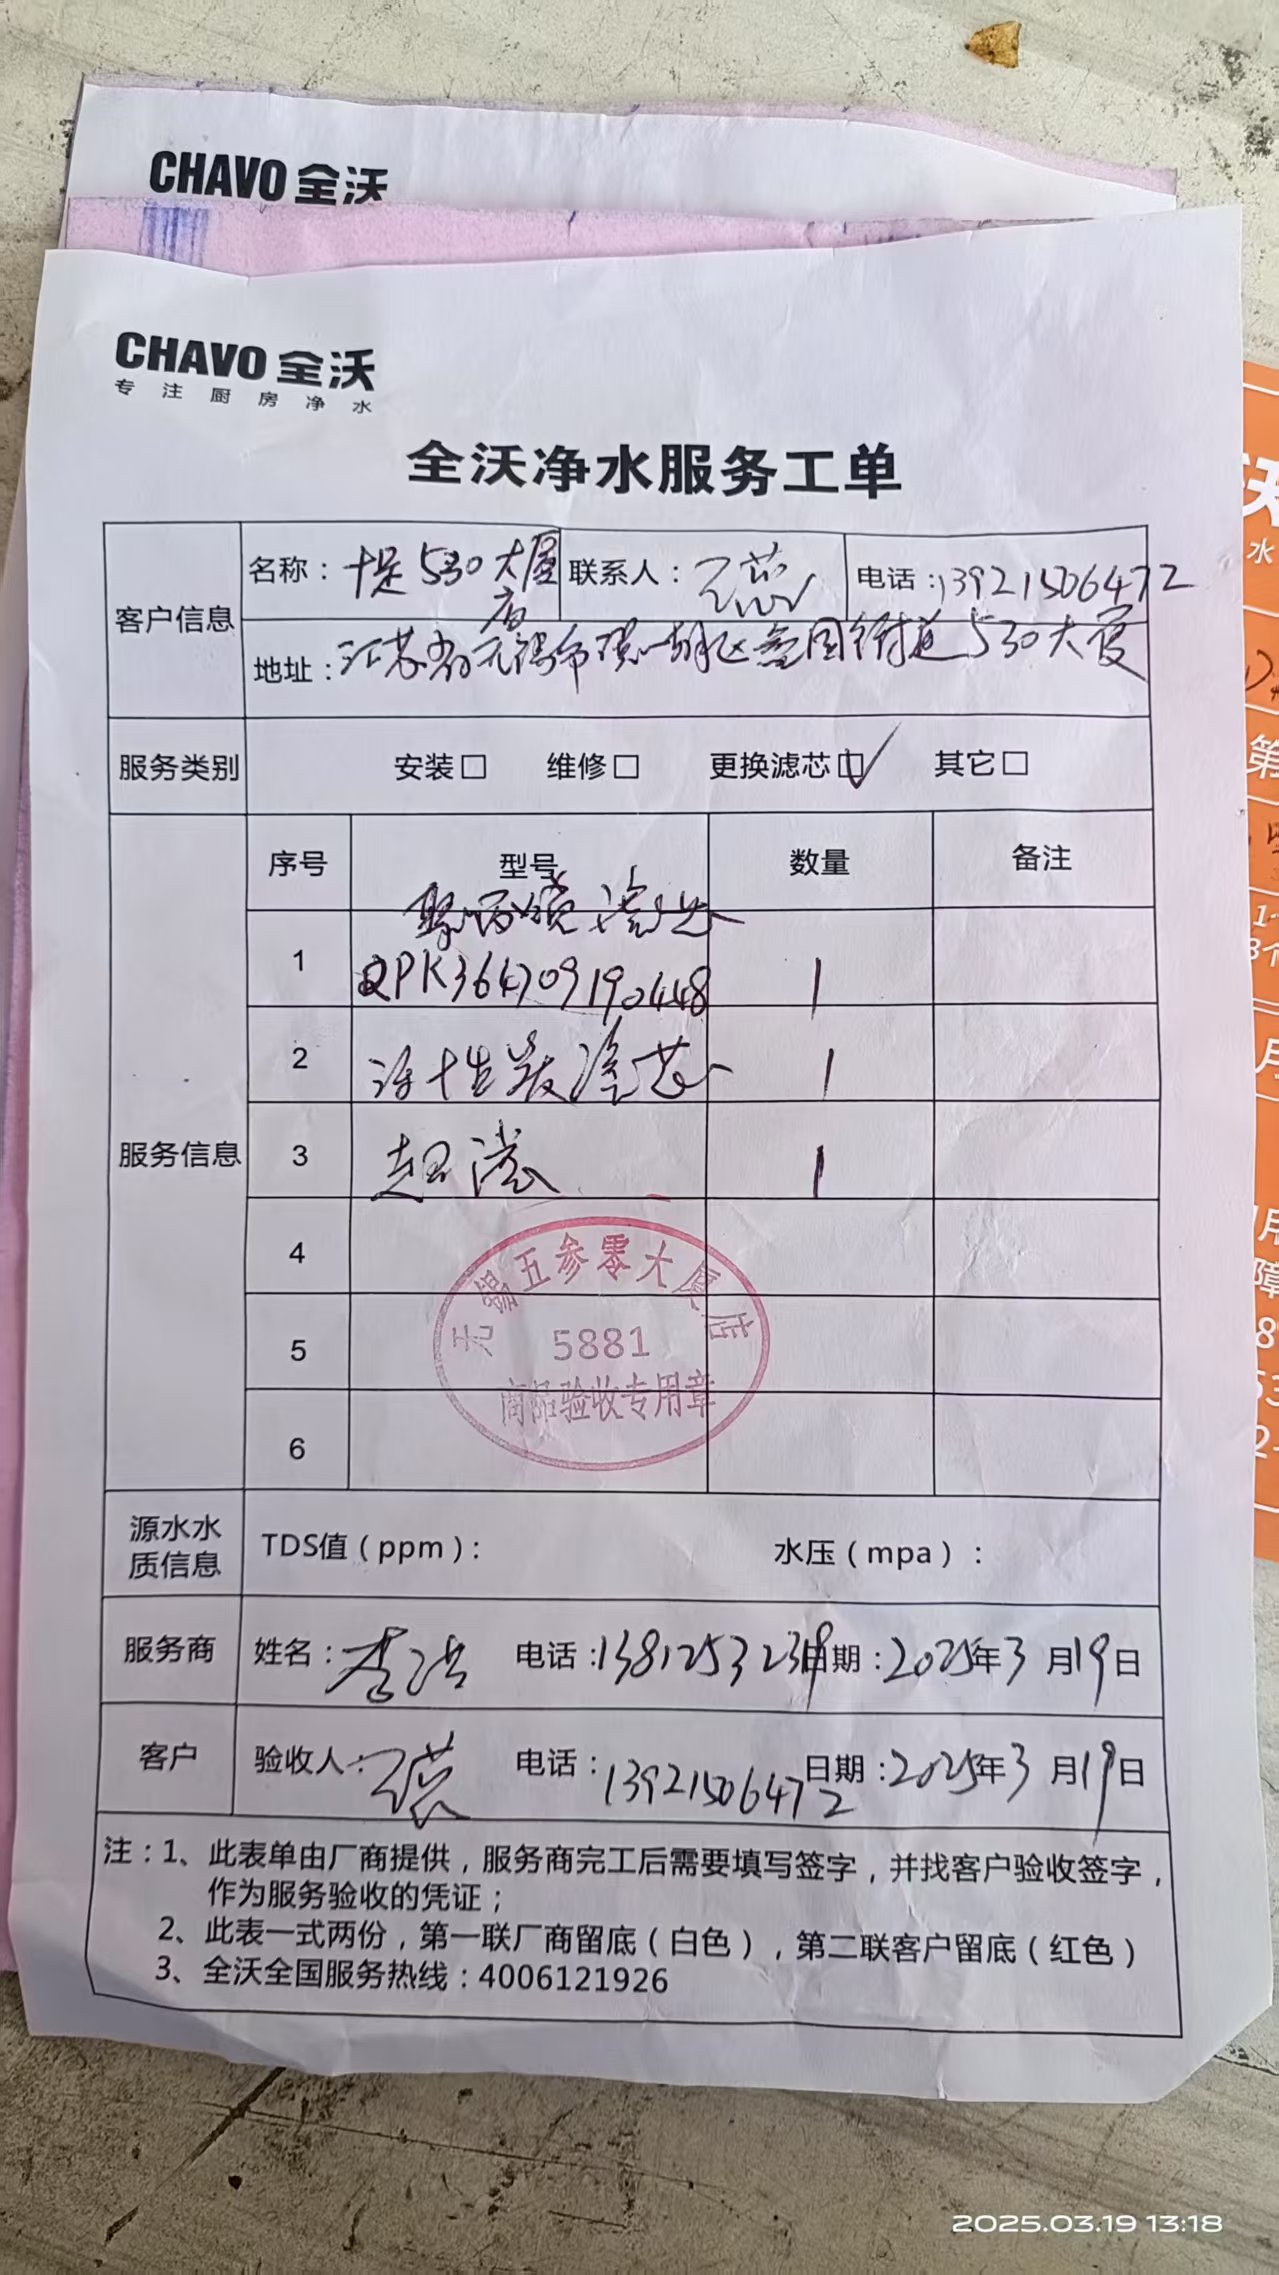 CHAVO 全沃
CHAVO 全沃
专注厨房净水
全沃净水服务工单
客户信息
名称：十足530大厦店
联系人：
电话：13921506472
地址：江苏省无锡市滨湖区蠡园街道530大厦
服务类别
安装□ 维修□ 更换滤芯☑ 其它□
服务信息
序号 型号 数量 备注
1 聚丙烯滤芯 1
QPK364709190448
2 活性炭滤芯 1
3 超滤 1
4
5
6
无锡五参零大厦店
5881
商品验收专用章
源水水质信息
TDS值（ppm）： 水压（mpa）：
服务商 姓名：李洪 电话：13812532319 日期：2025年3月19日
客户 验收人： 电话：13921506472 日期：2025年3月19日
注：1、此表单由厂商提供，服务商完工后需要填写签字，并找客户验收签字，
作为服务验收的凭证；
2、此表一式两份，第一联厂商留底（白色），第二联客户留底（红色）
3、全沃全国服务热线：4006121926
2025.03.19 13:18